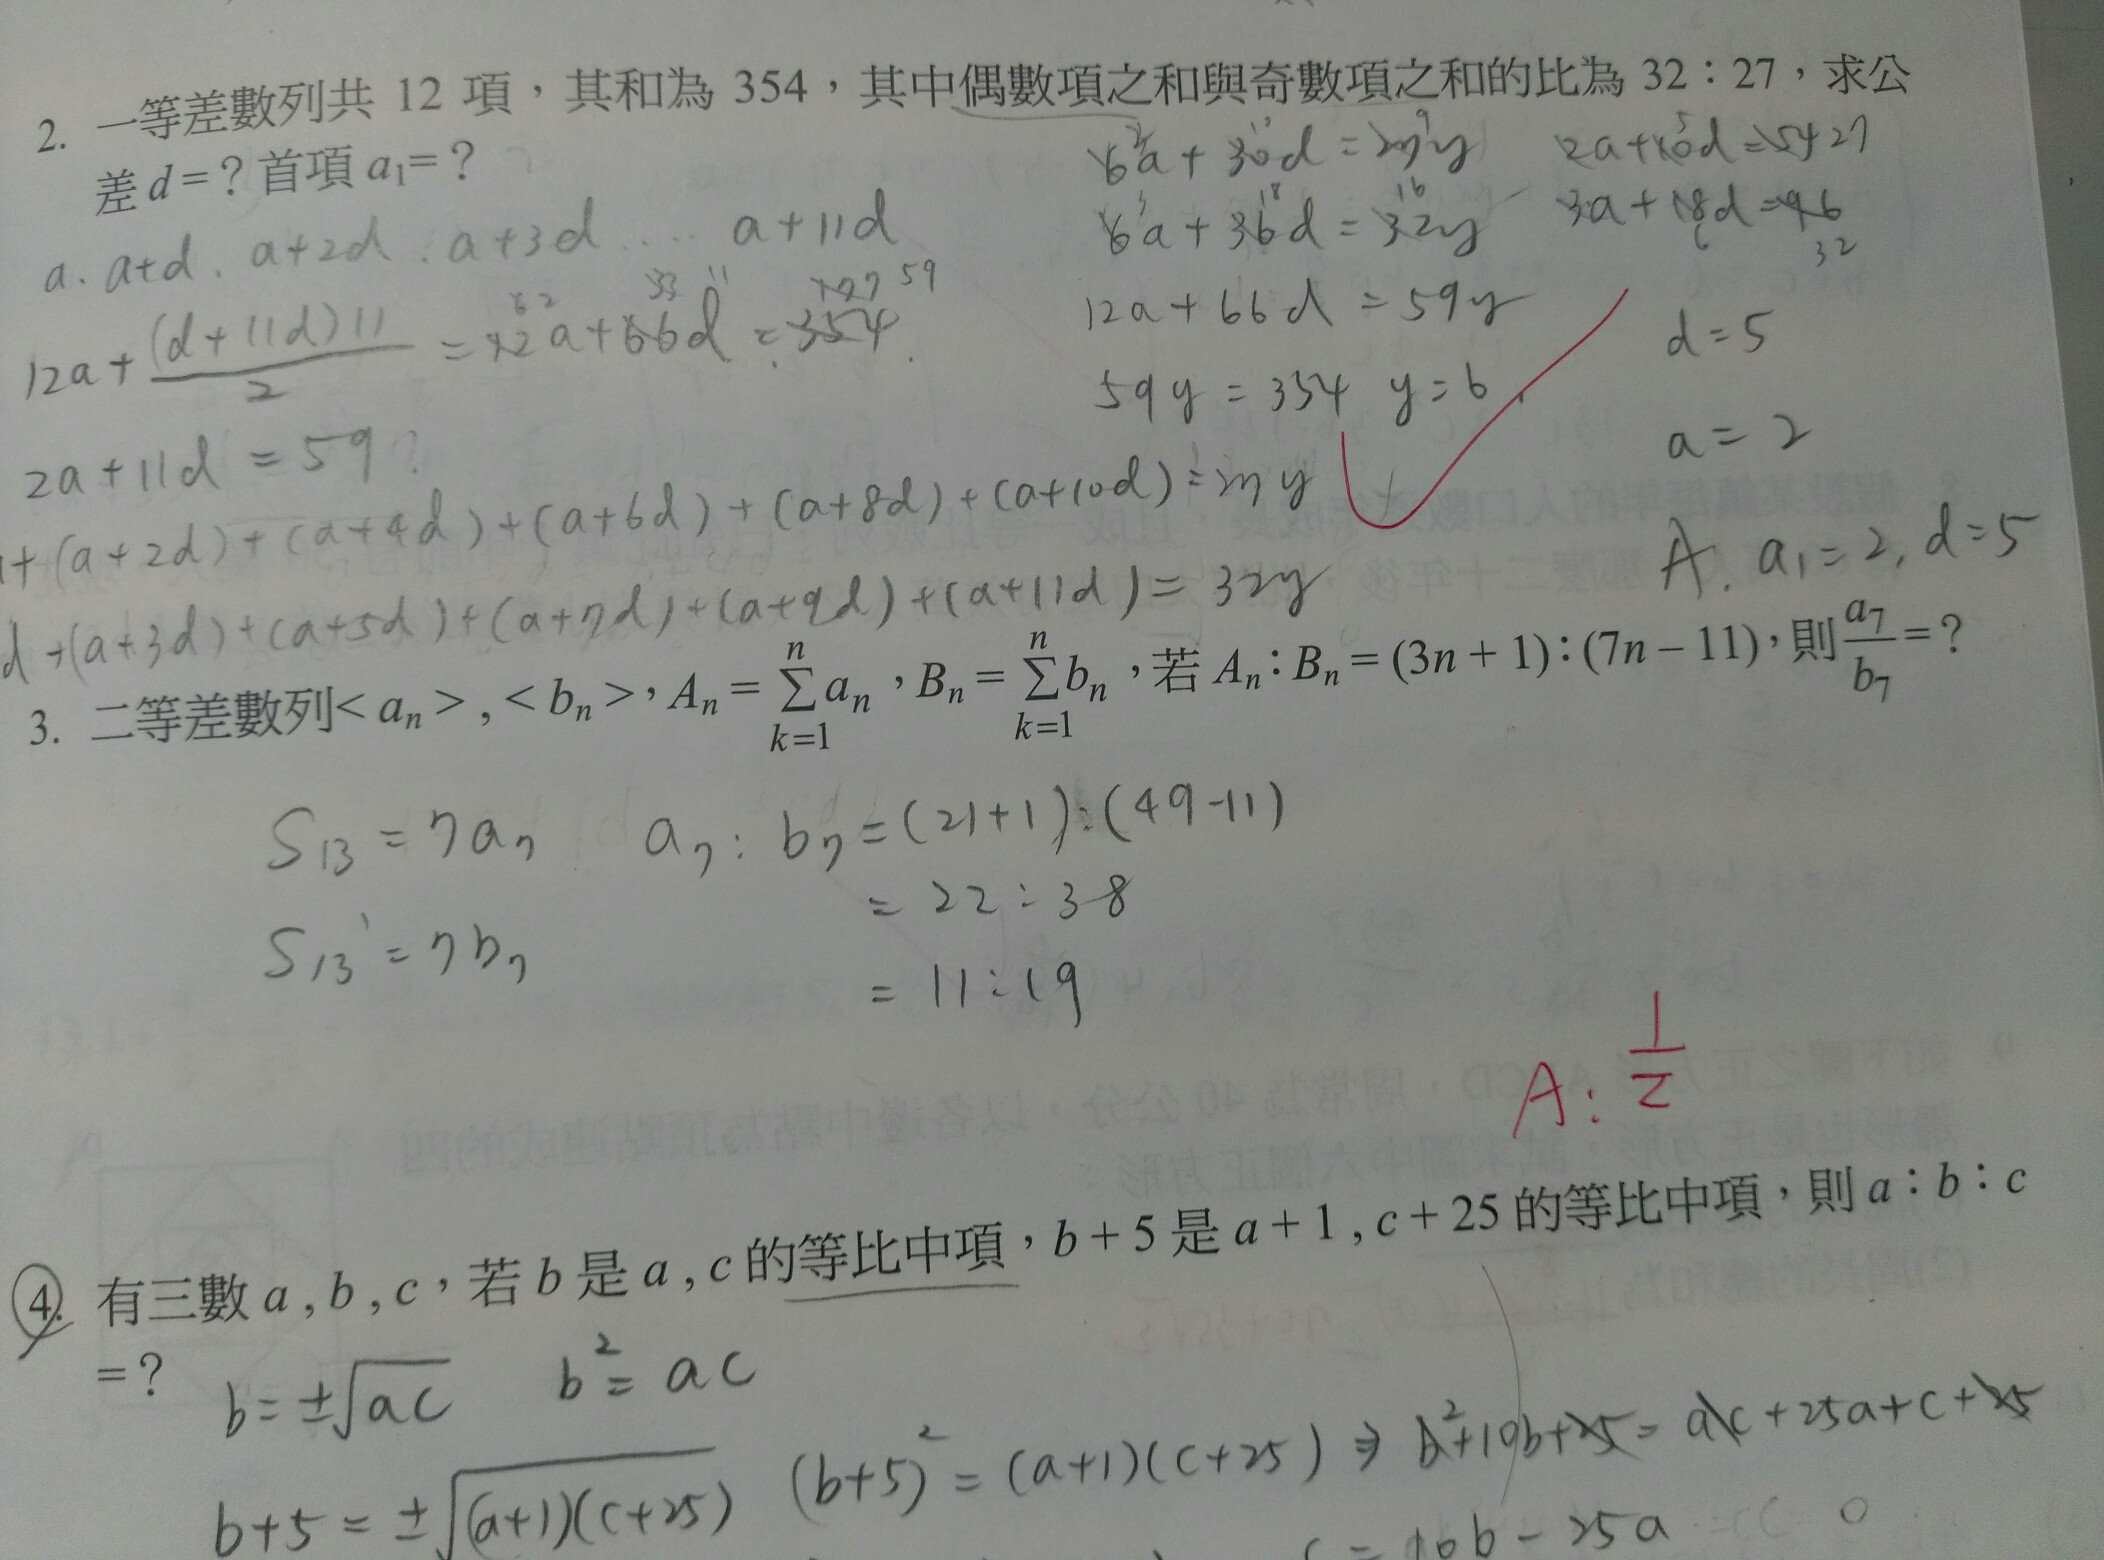 2. 一等差數列共 12 項，其和為 354，其中偶數項之和與奇數項之和的比為 32：27，求公
差 d = ? 首項 a₁= ?
a. a+d. a+2d. a+3d .... a+11d
12a + (d+11d)11/2 = 12a+66d = 354.
59
2a + 11d = 59
+ (a+2d) + (a+4d) + (a+6d) + (a+8d) + (a+10d) = 27y
d + (a+3d) + (a+5d) + (a+7d) + (a+9d) + (a+11d) = 32y
6a + 30d = 27y
6a + 36d = 32y
12a + 66d = 59y
59y = 354 y = 6
2a + 10d = 54 27
3a + 18d = 96
32
d = 5
a = 2
A. a₁ = 2, d = 5
3. 二等差數列< aₙ > , < bₙ >，Aₙ = ∑ₖ₌₁ⁿ aₙ，Bₙ = ∑ₖ₌₁ⁿ bₙ，若 Aₙ：Bₙ = (3n + 1)：(7n – 11)，則 a₇/b₇ = ?
S₁₃ = 7a₇ a₇ : b₇ = (21+1) : (49-11)
= 22 : 38
S₁₃' = 7b₇
= 11 : 19
A: 1/2
4. 有三數 a , b , c，若 b 是 a , c 的等比中項，b + 5 是 a + 1 , c + 25 的等比中項，則 a：b：c
= ?
b = ±√ac b² = ac
b+5 = ±√(a+1)(c+25) (b+5)² = (a+1)(c+25) ⇒ b²+10b+25 = ac+25a+c+25
c = 10b - 25a